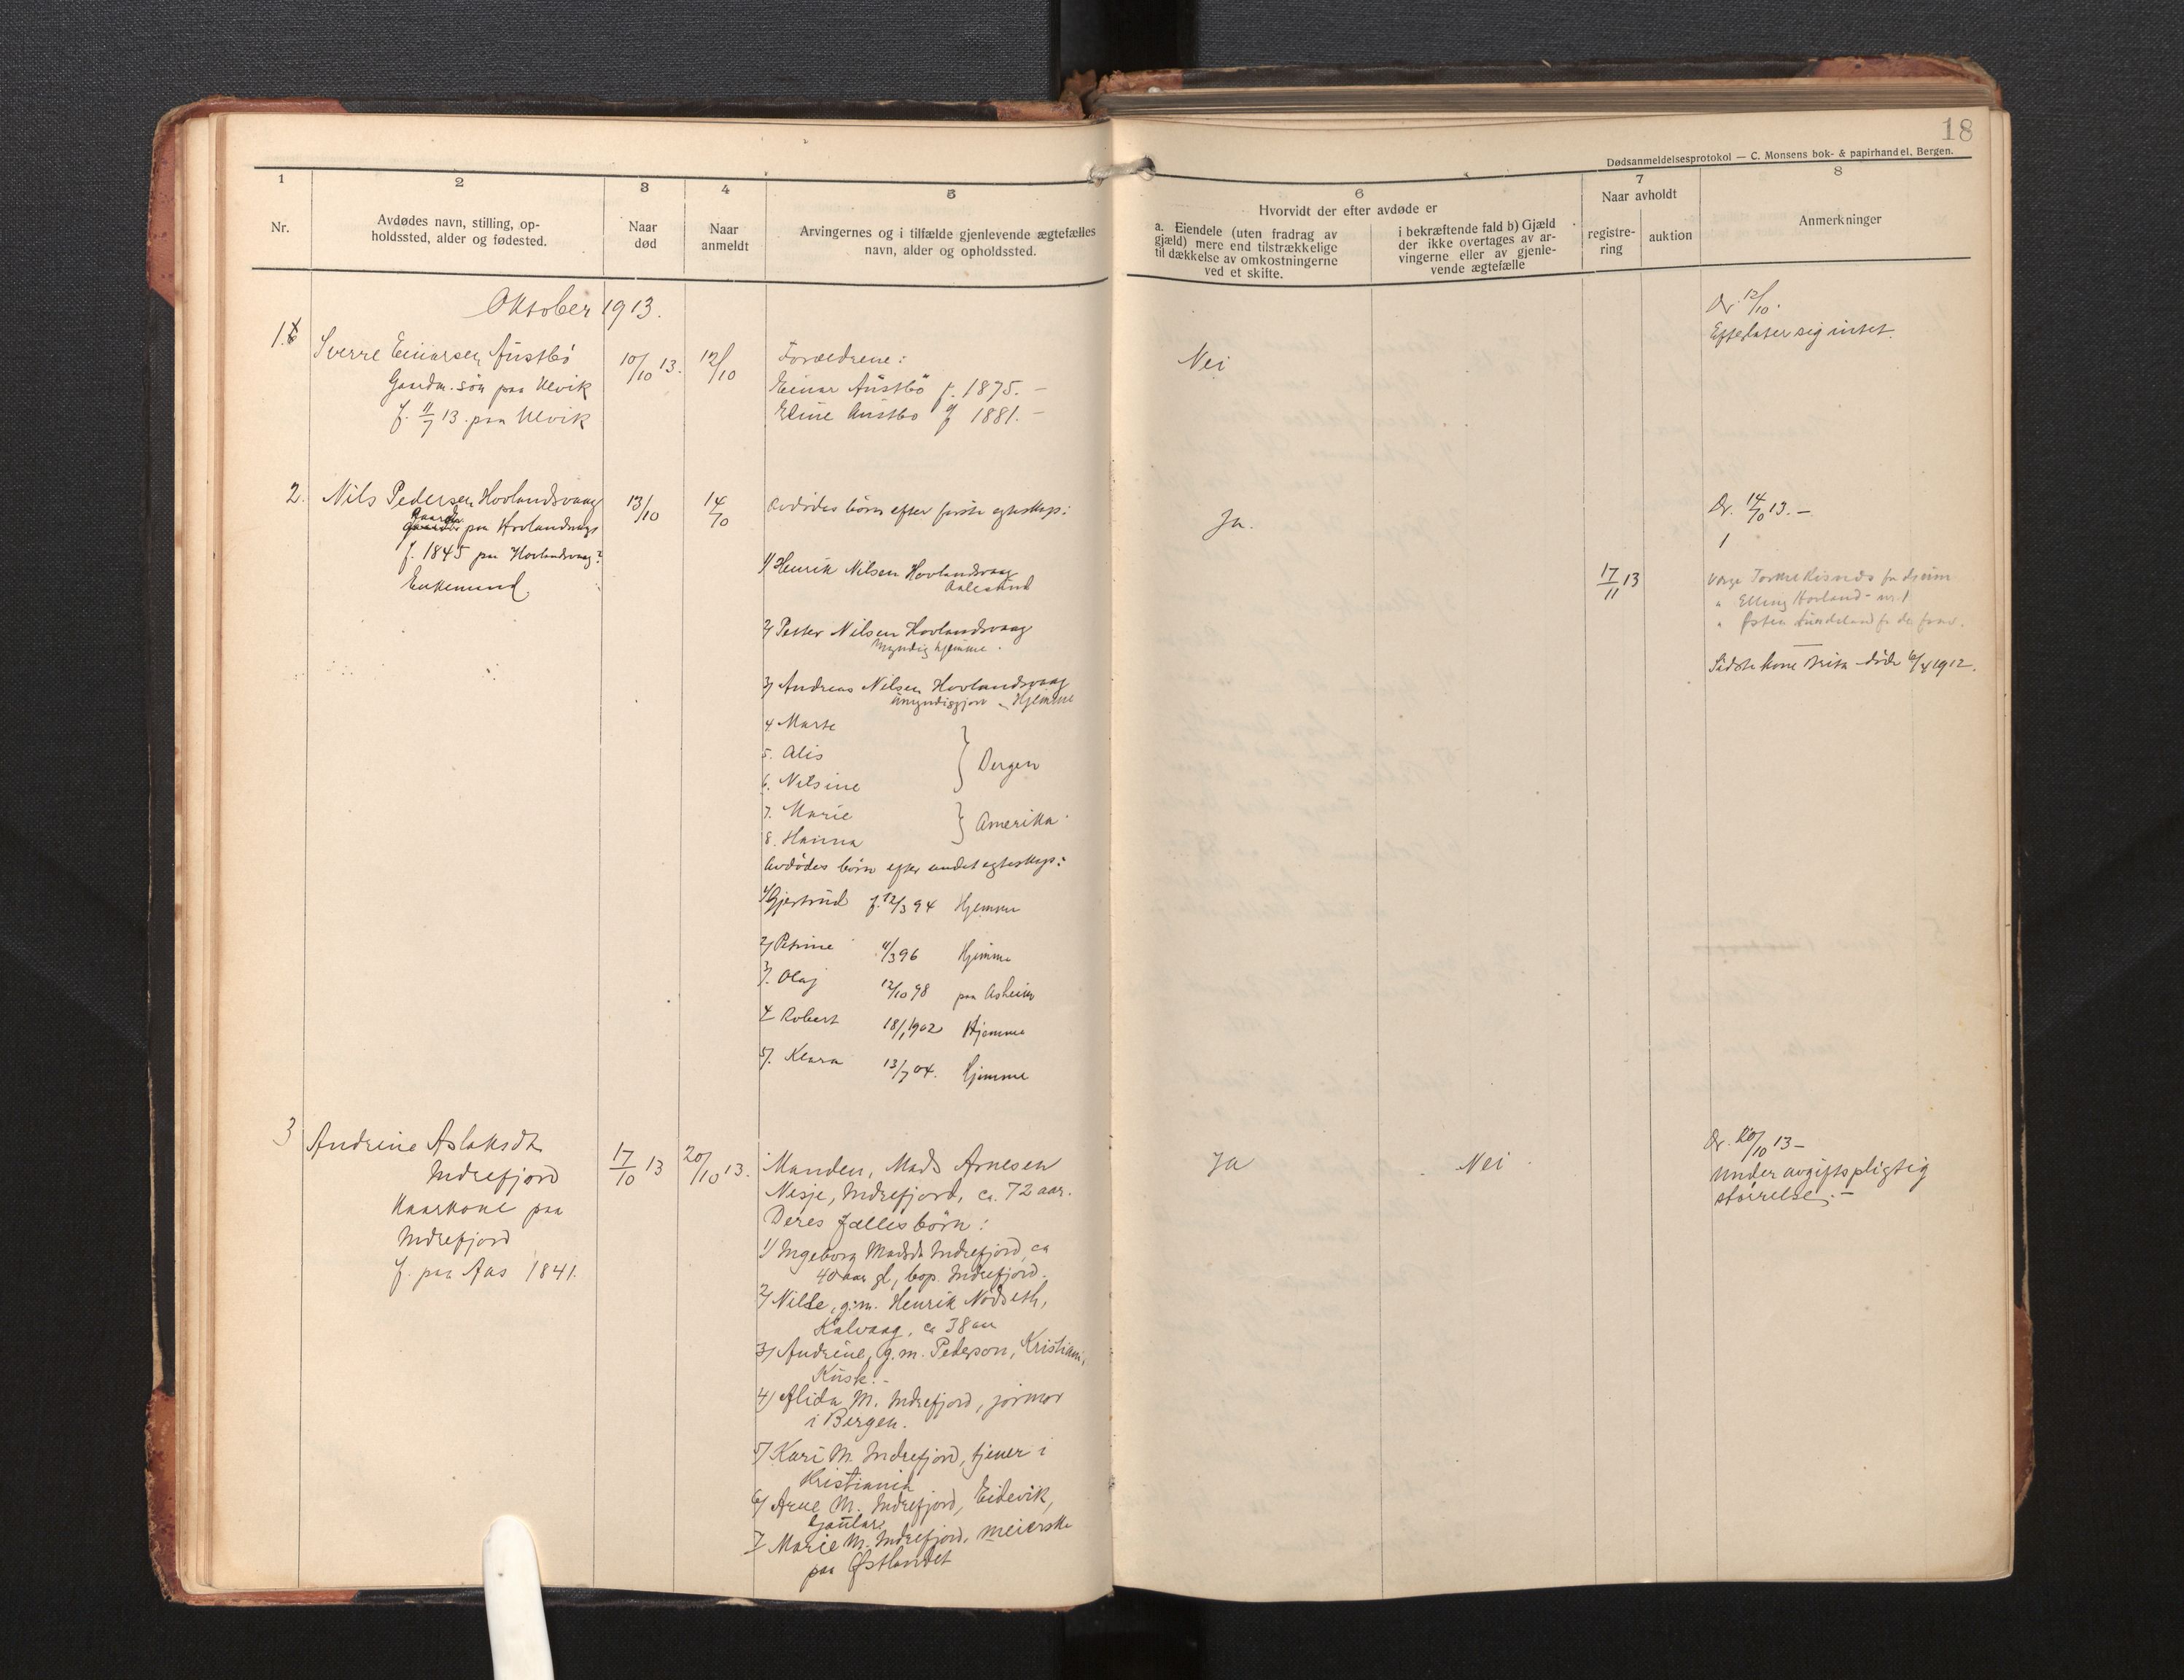 18
Dødsanmeldelsesprotokol — C. Monsens bok- & papirhandel, Bergen.
1
Nr.
2
Avdødes navn, stilling, op-
holdssted, alder og fødested.
3
Naar
død
4
Naar
anmeldt
5
Arvingernes og i tilfælde gjenlevende ægtefælles
navn, alder og opholdssted.
6
Hvorvidt der efter avdøde er
a. Eiendele (uten fradrag av
gjæld) mere end tilstrækkelige
til dækkelse av omkostningerne
ved et skifte.
i bekræftende fald b) Gjæld
der ikke overtages av ar-
vingerne eller av gjenle-
vende ægtefælle
7
Naar avholdt
registre-
ring
auktion
8
Anmerkninger
Oktober 1913.
1.
Sverre Einarsen Austbö
Gaardm. sön paa Ulvik
f. 11/7 13. paa Ulvik
10/10 13.
12/10
Forældrene:
Einar Austbö f. 1875. –
Eline Austbö f 1881. –
Nei
Dr. 12/10.
Efterlater sig intet.
2.
Nils Pedersen Hovlandsvaag
paa Hovlandsvaag
f. 1845 paa Hovlandsvaag?
Enkemand.
13/10
14/10
Avdødes börn efter förste egteskap:
1) Henrik Nilsen Hovlandsvaag
Aalesund
2) Petter Nilsen Hovlandsvaag
Myndig hjemme.
3) Andreas Nilsen Hovlandsvaag
Umyndiggjort – Hjemme
4. Marte
5. Alis
6. Nilsine
} Bergen
7. Marie
8. Hanna
} Amerika.
Avdödes börn efter andet egteskap:
1) Gjertrud f. 12/3 94 Hjemme
2) Petrine 11/3 96 Hjemme
3). Olaj 12/10 98 paa Asheim
4 Robert 18/1 1902 Hjemme
5). Klara 13/7 04. Hjemme
Ja.
17/11 13
Dr. 14/10 13. –
Verge
" Elling Hovland – nr. 1
"
Sidste kone Brita döde 6/4 1912.
3
Andrine Aslaksdtr
Indrefjord
Kaarkone paa
Indrefjord
f. paa Aas 1841.
17/10 13
20/10 13.
Manden, Mads Arnesen
Nesje, Indrefjord, ca. 72 aar.
Deres fællesbörn:
1) Ingeborg Madsdtr Indrefjord, ca
40 aar gl, bop. Indrefjord.
2) Nille, g.m. Henrik Nödseth,
Kalvaag, ca 38 aar
3) Andrine, g.m. Pederson, Kristiania,
Kusk. –
4) Alida M. Indrefjord, jormor
i Bergen.
5) Kari M. Indrefjord, tjener i
Kristiania
6) Arne M. Indrefjord, Eidevik,
Gaular
7 Marie M. Indrefjord, meierske
paa Østlandet
Ja
Nei
Dr. 20/10 13 –
Under avgiftspligtig
störrelse. –